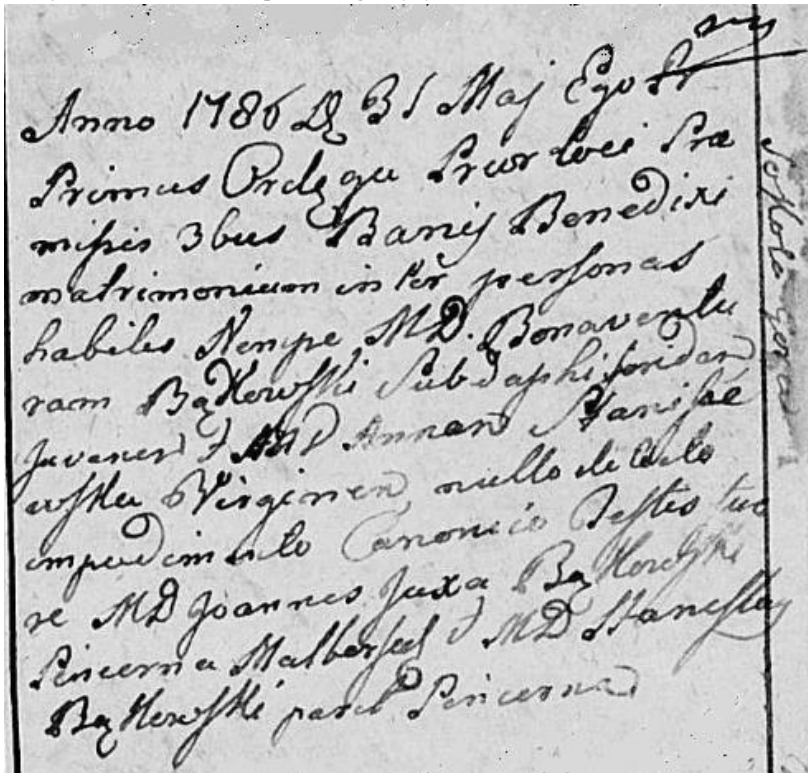 Anno 1786 D 31 Maj Ego Fr
Primus Prior loci Præ
missis 3bus Banis Benedixi
matrimonium inter personas
habiles Nempe MD. Bonaventu
ram Bąkowski
Juvenem & MD Annam Stanisła
wska Virginem nullo detecto
impedimento Canonico Testes fue
re MD Joannes Juxa Bąkowski
Pincerna & MD Stanislaus
Bąkowski Pincerna